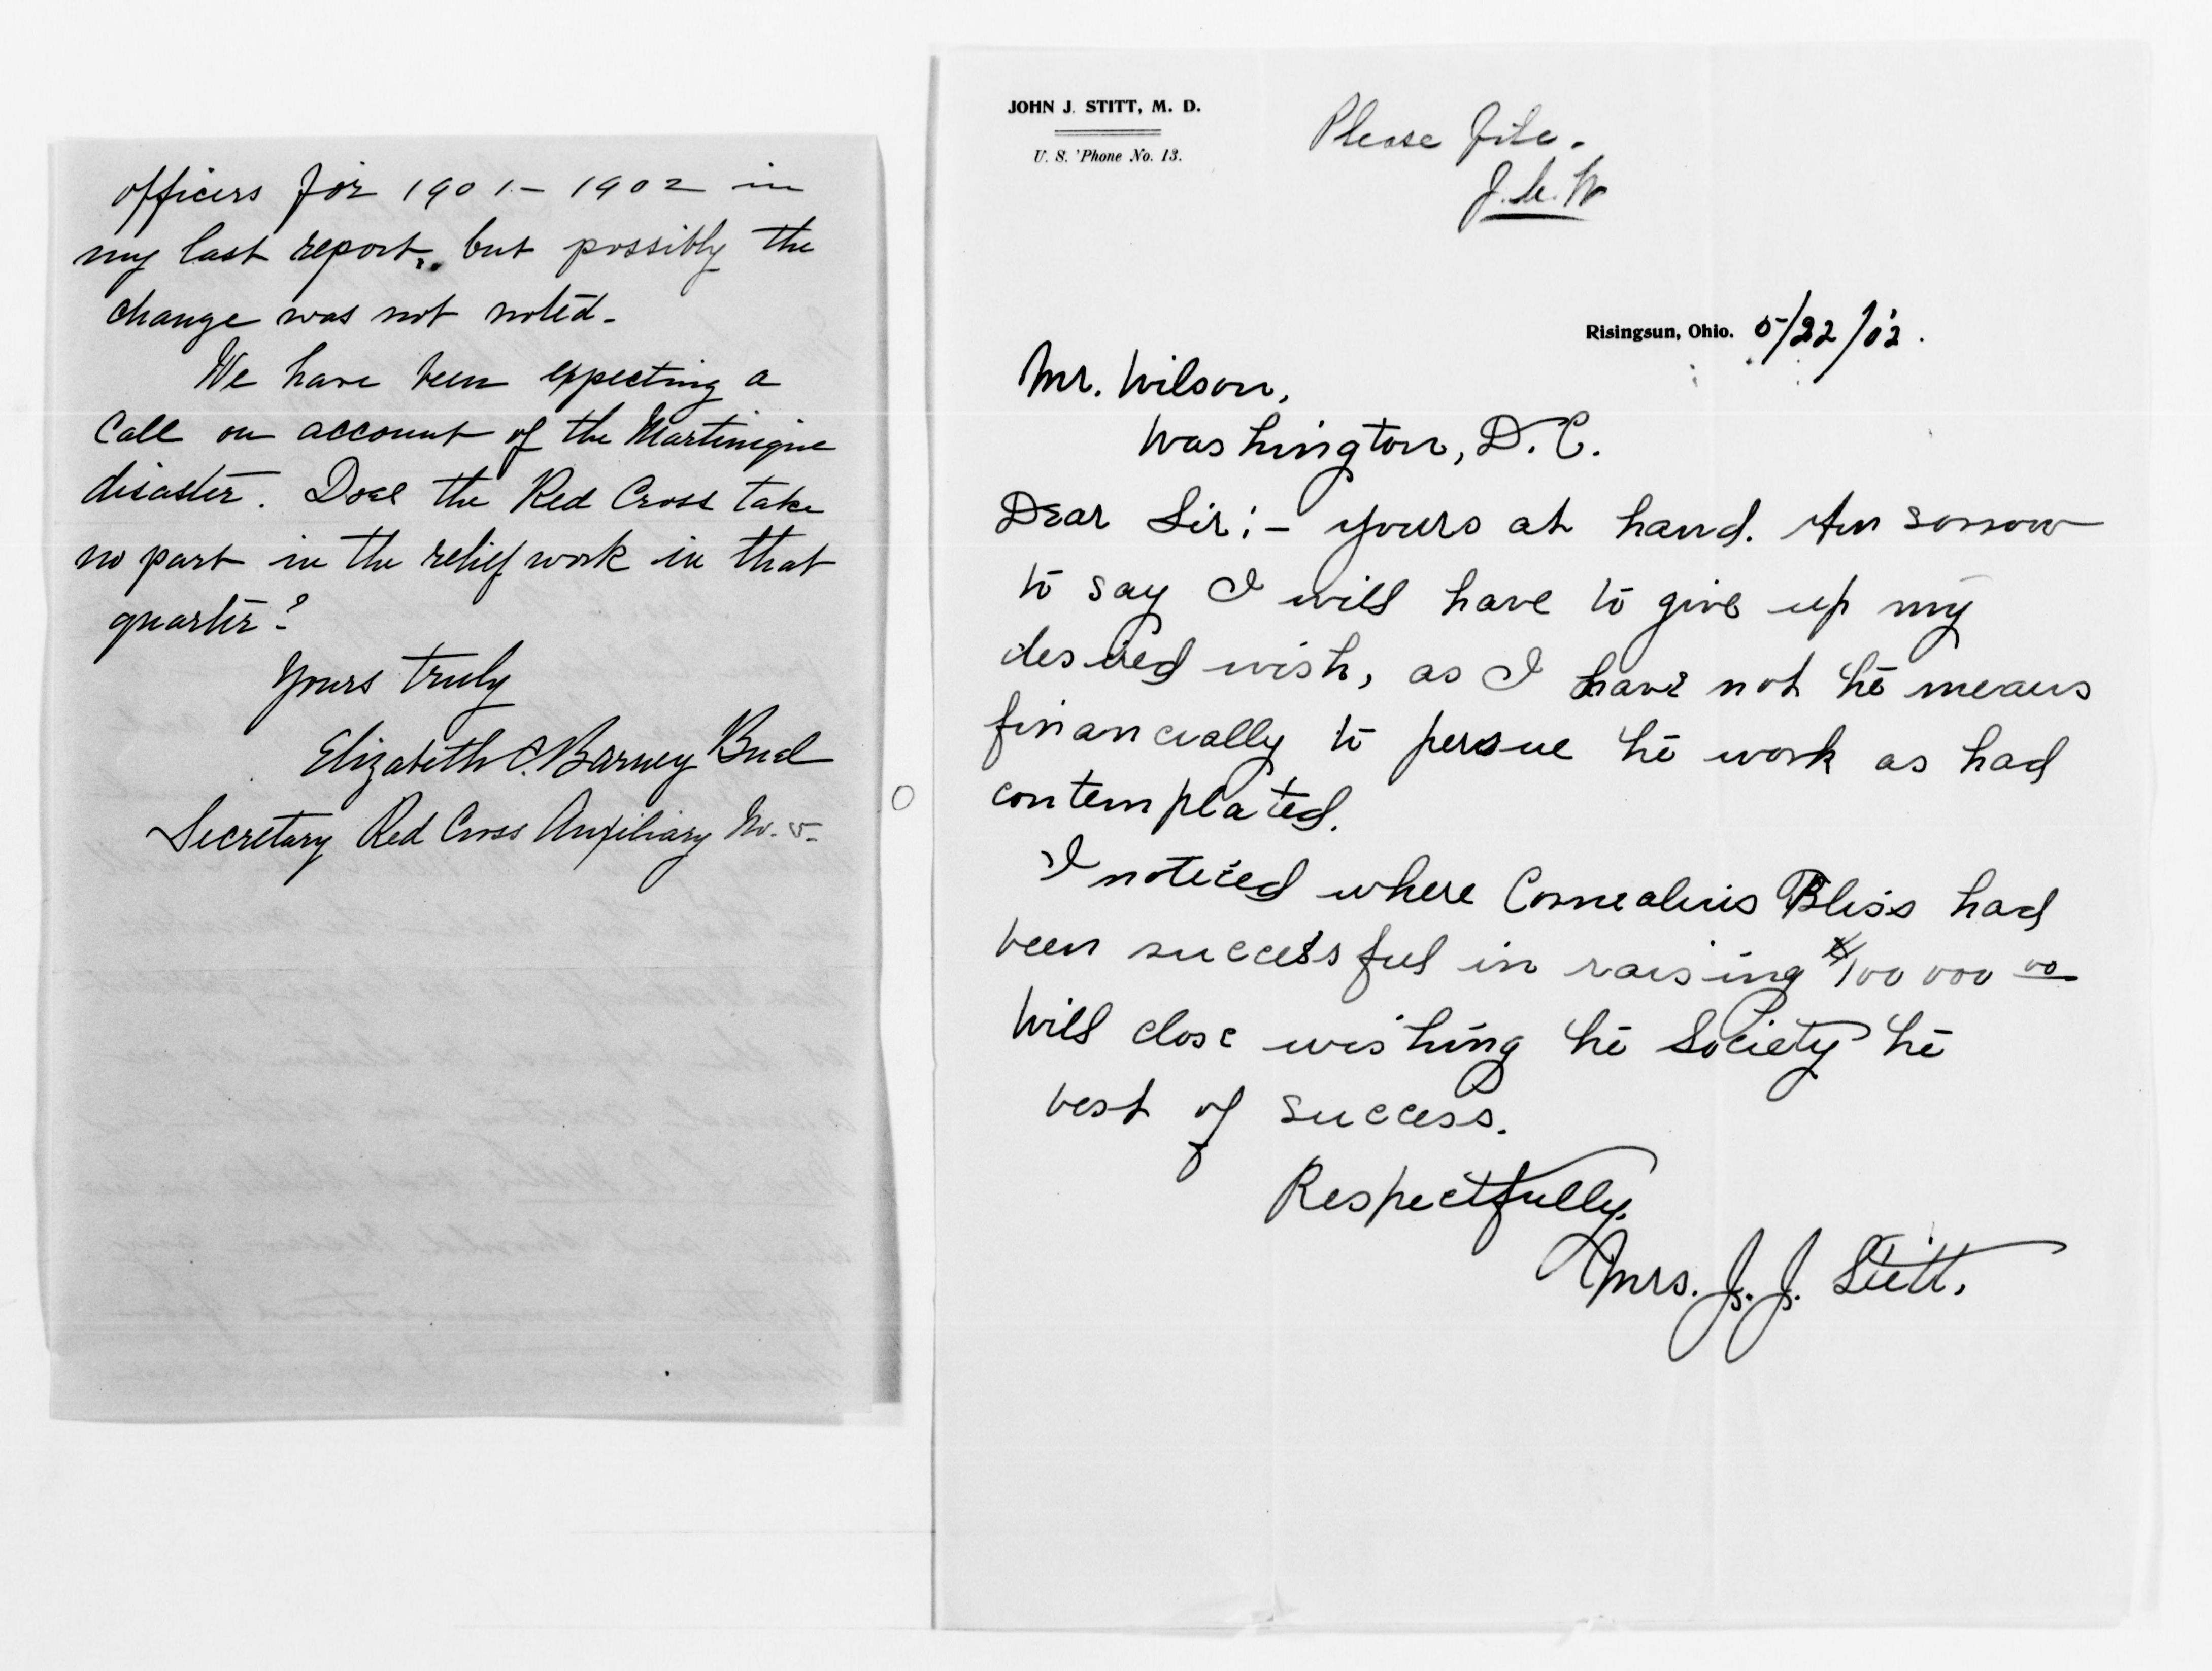 officers for 1901-1902 in
my last report, but possibly the
change was not noted-
We have been expecting a
call on account of the Martinique
disaster. Does the Red Cross take
no part in the relief work in that
quarter?
Yours truly
Elizabeth C. Barney Buel
Secretary Red Cross Auxiliary No. 5-
JOHN J. STITT, M. D.
U. S. 'Phone No. 13.
Please file.
Risingsun, Ohio. 5/22/02.
Mr. Wilson,
Washington, D.C.
Dear Sir:- yours at hand. Am sorrow
to say I will have to give up my
desired wish, as I have not the means
financially to persue the work as had
contemplated.
I noticed where Cornealius Bliss had
been successful in raising $100 000 00
Will close wishing the Society the
best of success.
Respectfully,
Mrs. J. J. Stitt.